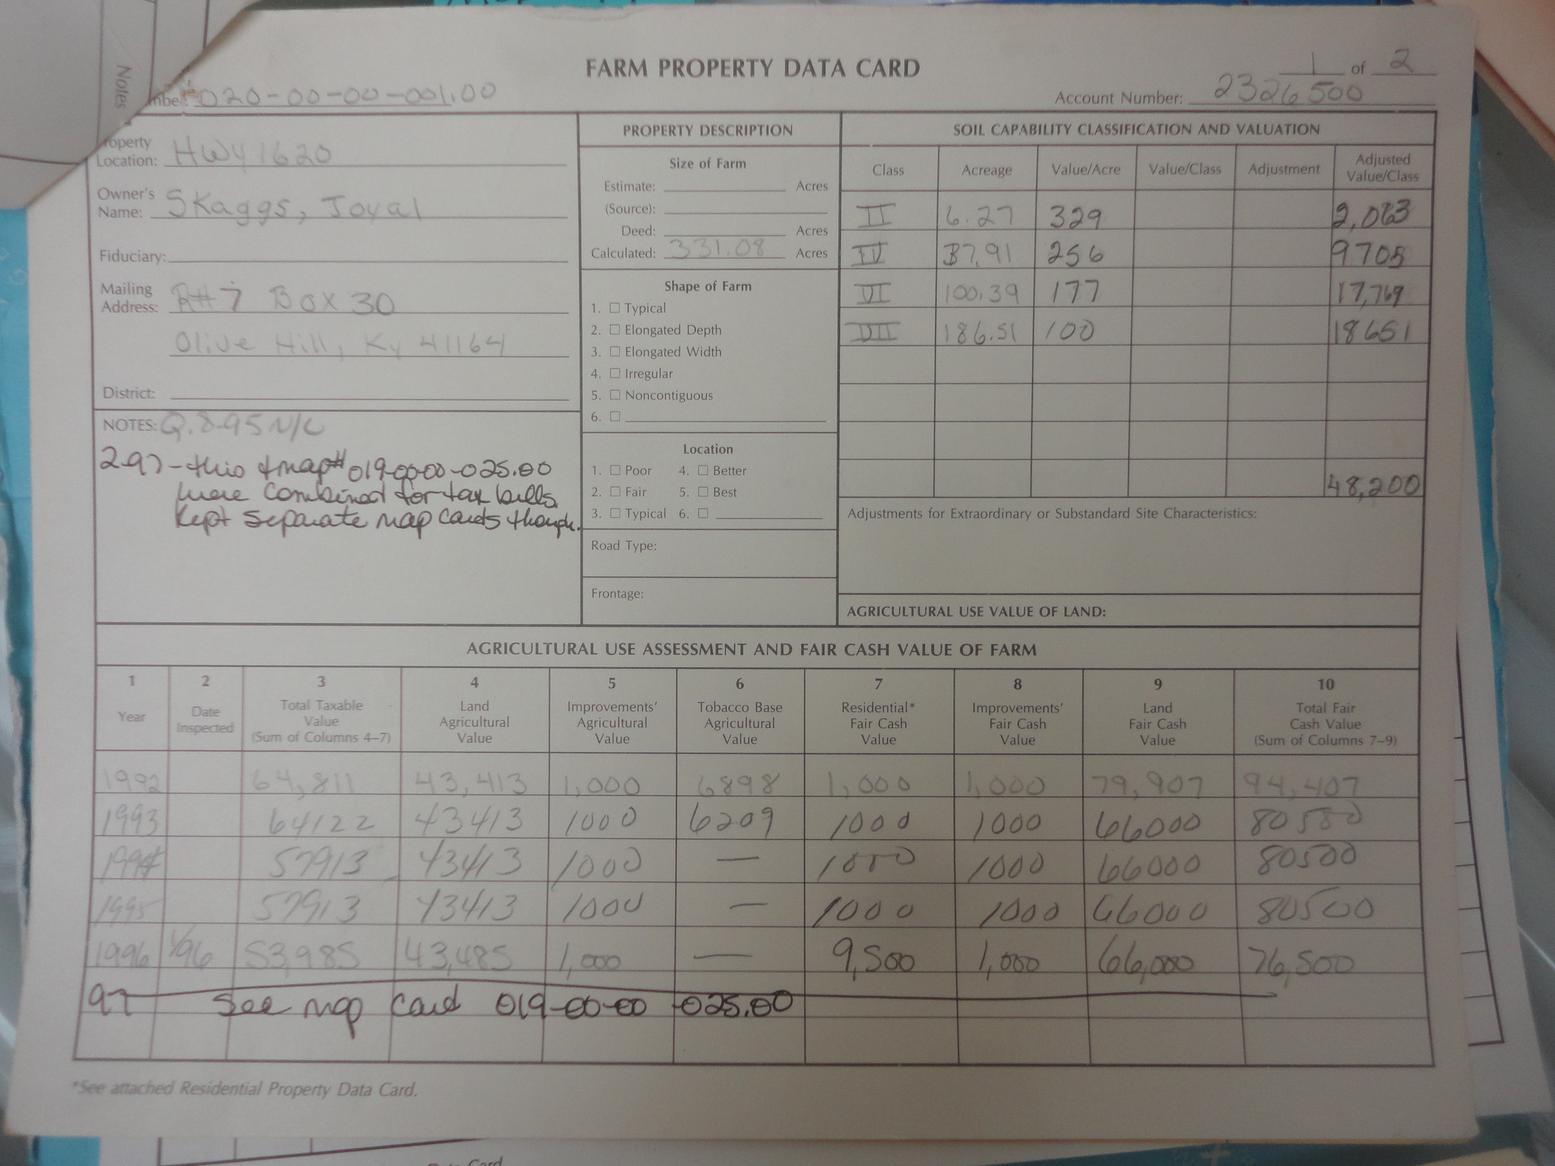 Notes
FARM PROPERTY DATA CARD
1 of 2
020-00-00-001.00
Account Number: 2326500
Property Location: HWY 1620
Owner's Name: Skaggs, Joyal
Fiduciary:
Mailing Address: R#7 Box 30
Olive Hill, Ky 41164
District:
NOTES: Q.8-95 N/C
2-97-this & map# 019-00-00-025.00
were combined for tax bills.
Kept separate map cards though.
PROPERTY DESCRIPTION
Size of Farm
Estimate: Acres
(Source):
Deed: Acres
Calculated: 331.08 Acres
Shape of Farm
1. □ Typical
2. □ Elongated Depth
3. □ Elongated Width
4. □ Irregular
5. □ Noncontiguous
6. □
Location
1. □ Poor 4. □ Better
2. □ Fair 5. □ Best
3. □ Typical 6. □
Road Type:
Frontage:
SOIL CAPABILITY CLASSIFICATION AND VALUATION
Class Acreage Value/Acre Value/Class Adjustment Adjusted Value/Class
II 6.27 329 2,063
IV 37.91 256 9705
VI 100.39 177 17,769
VII 186.51 100 18651
48,200
Adjustments for Extraordinary or Substandard Site Characteristics:
AGRICULTURAL USE VALUE OF LAND:
AGRICULTURAL USE ASSESSMENT AND FAIR CASH VALUE OF FARM
1 2 3 4 5 6 7 8 9 10
Year Date Inspected Total Taxable Value (Sum of Columns 4–7) Land Agricultural Value Improvements' Agricultural Value Tobacco Base Agricultural Value Residential* Fair Cash Value Improvements' Fair Cash Value Land Fair Cash Value Total Fair Cash Value (Sum of Columns 7–9)
1992 64,811 43,413 1,000 6898 1,000 1,000 79,907 94,407
1993 64122 43413 1000 6209 1000 1000 66000 80500
1994 57913 43413 1000 — 1000 1000 66000 80500
1995 57913 43413 1000 — 1000 1000 66000 80500
1996 1/96 53,985 43,485 1,000 — 9,500 1,000 66,000 76,500
97 See map card 019-00-00 025.00
*See attached Residential Property Data Card.
Card